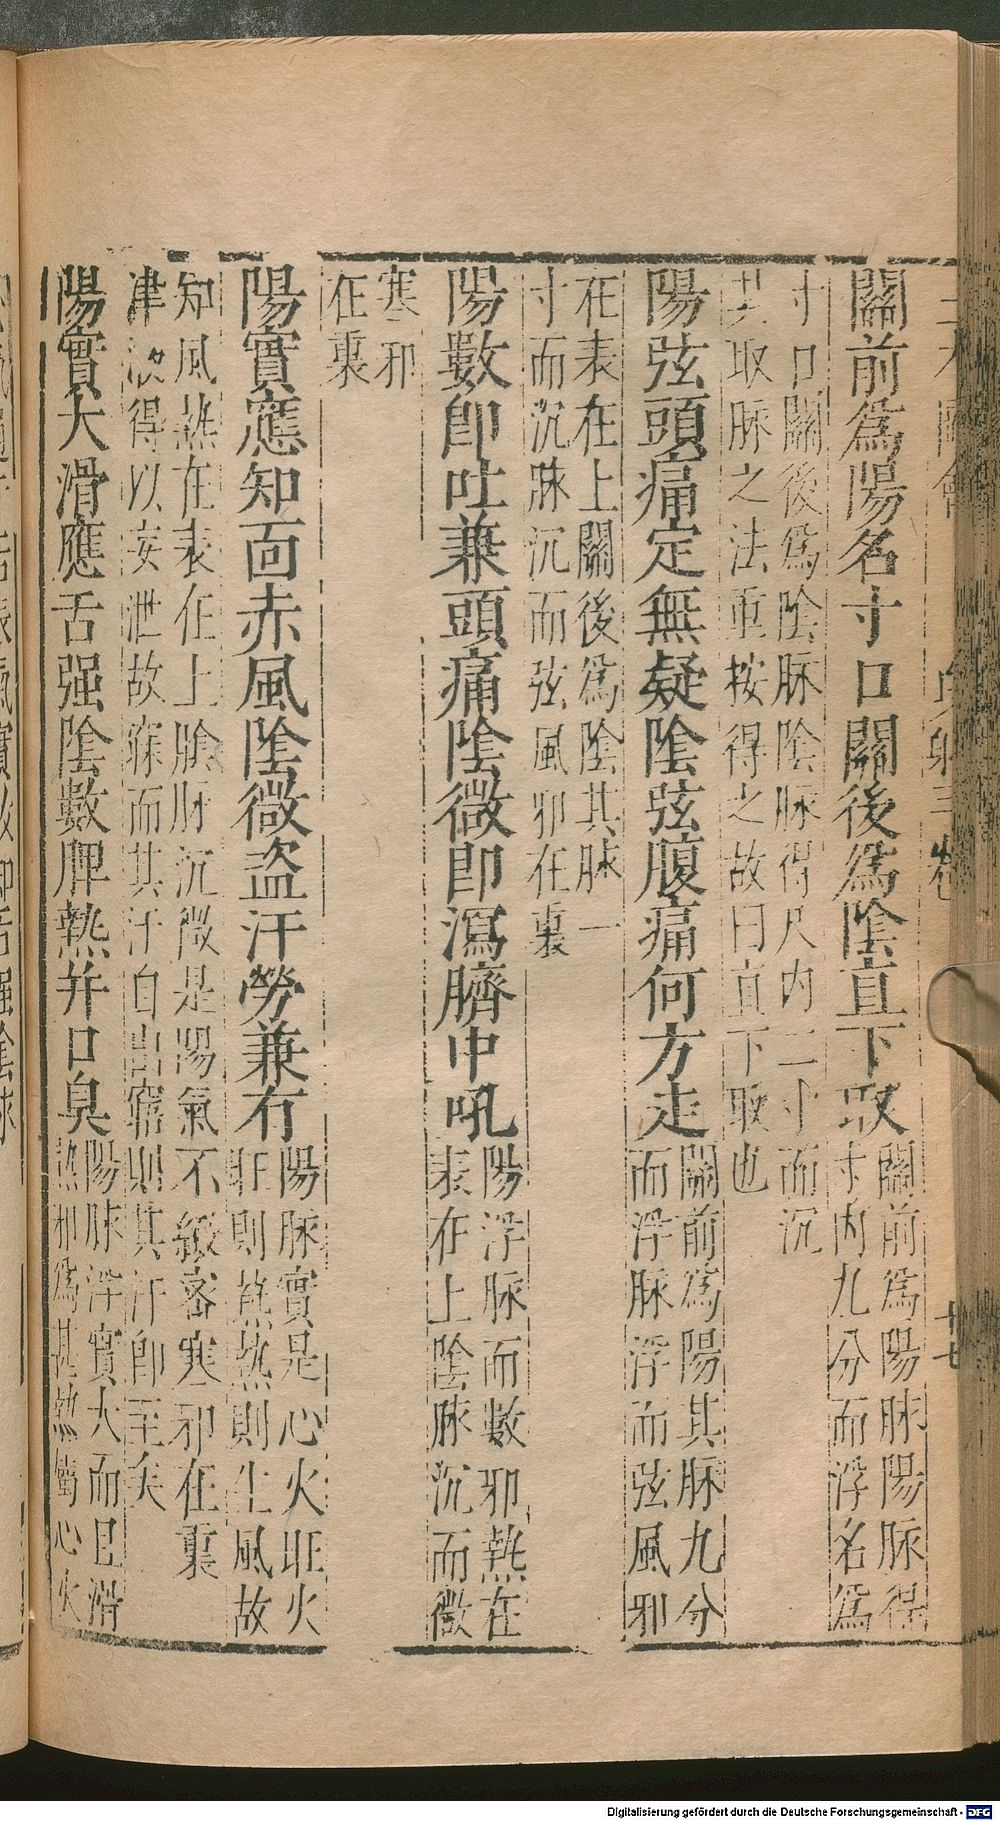 關前爲陽名寸口關後爲陰直下取
關前爲陽脉陽脉得
寸内九分而浮名爲
寸口關後爲陰脉陰脉得尺内一寸而沉
其取脉之法重按得之故曰直下取也
陽弦頭痛定無疑陰弦腹痛何方走
關前爲陽其脉九分
而浮脉浮而弦風邪
在表在上關後爲陰其脉一
寸而沉脉沉而弦風邪在裏
陽數卽吐兼頭痛陰微卽瀉臍中吼
陽浮脉而數邪熱在
表在上陰脉沉而微
寒邪
在裏
陽實應知面赤風陰微盜汗勞兼有
陽脉實是心火旺火
旺則熱熱則生風故
知風熱在表在上陰脉沉微是陽氣不緻密寒邪在裏
津液得以妄泄故寐而其汗自出寤則其汗卽至矣
陽實大滑應舌强陰數脾熱并口臭
陽脉浮實大而且滑
熱邪爲甚熱衝心火
Digitalisierung gefördert durch die Deutsche Forschungsgemeinschaft - DFG